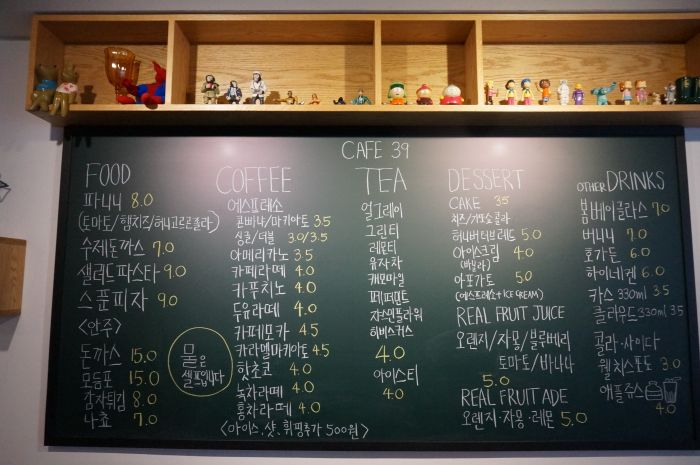 CAFE 39
FOOD
파니니 8.0
(토마토/햄치즈/허니고르곤졸라)
수제돈까스 7.0
샐러드파스타 9.0
스푼피자 9.0
<안주>
돈까스 15.0
모듬포 15.0
감자튀김 8.0
나쵸 7.0
물은
셀프입니다
COFFEE
에스프레소
콘빠나/마키아토 3.5
싱글/더블 3.0/3.5
아메리카노 3.5
카페라떼 4.0
카푸치노 4.0
두유라떼 4.0
카페모카 4.5
카라멜마키아토 4.5
핫초코 4.0
녹차라떼 4.0
홍차라떼 4.0
<아이스, 샷, 휘핑추가 500원>
TEA
얼그레이
그린티
레몬티
유자차
캐모마일
페퍼민트
쟈스민플라워
히비스커스
4.0
아이스티
4.0
DESSERT
CAKE 3.5
치즈/생초콜라
허니버터브레드 5.0
아이스크림 4.0
(바닐라)
아포가토 5.0
(에스프레소+ICE CREAM)
REAL FRUIT JUICE
오렌지/자몽/블루베리
토마토/바나나
5.0
REAL FRUIT ADE
오렌지·자몽·레몬 5.0
OTHER DRINKS
봄베이글라스 7.0
버니니 7.0
호가든 6.0
하이네켄 6.0
카스 330ml 3.5
클라우드 330ml 3.5
콜라·사이다
웰치스포도 3.0
애플쥬스
4.0